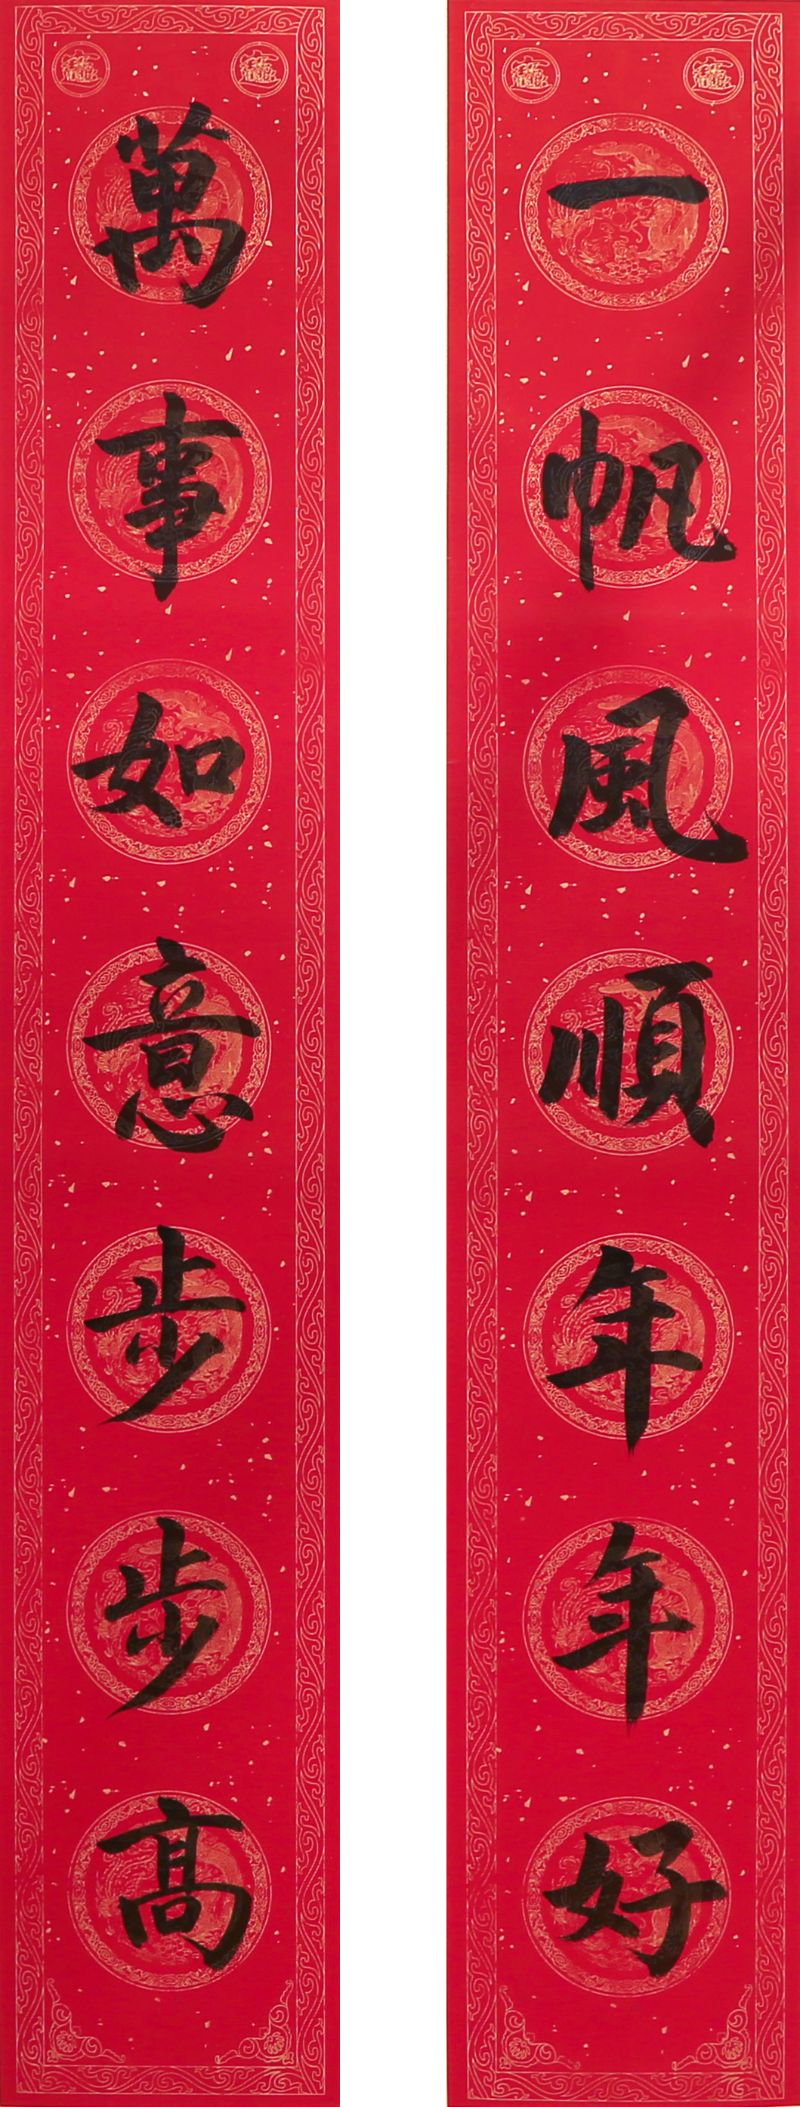 一帆風順年年好
萬事如意步步高